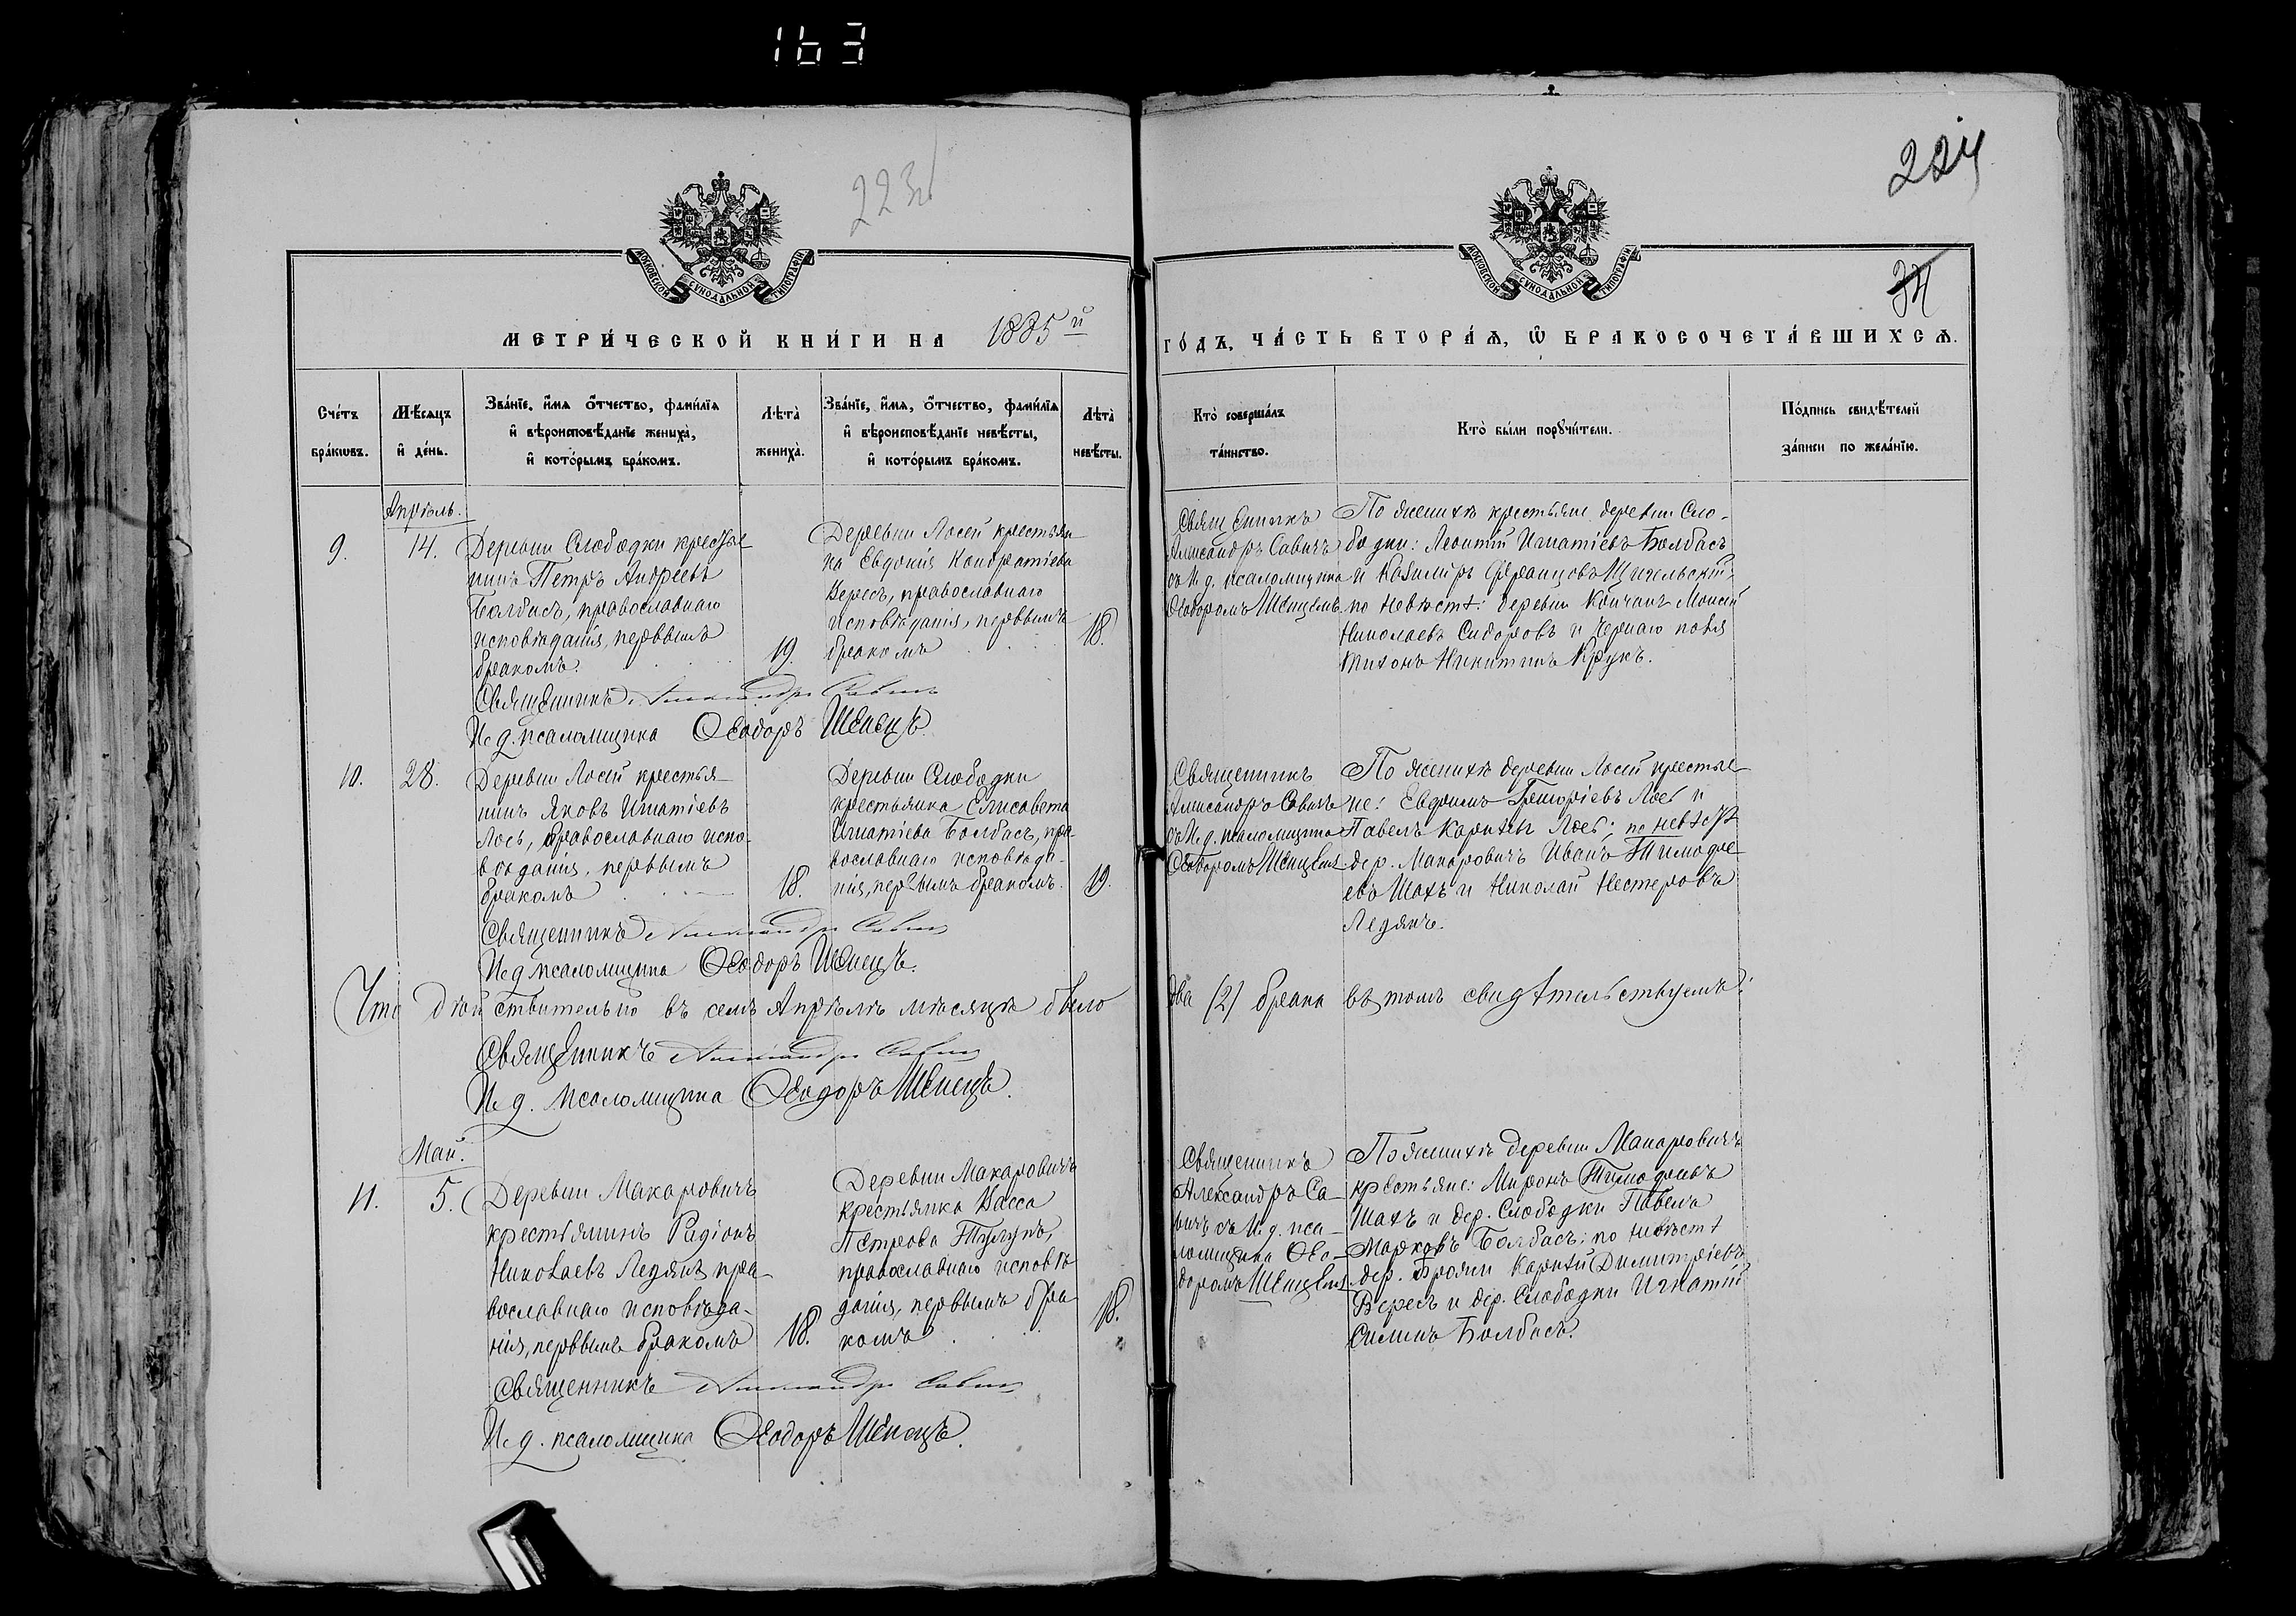 163
223об
224
34
МОСКОВСКОЙ СѴНОДАЛЬНОЙ ТИПОГРАФІИ
МОСКОВСКОЙ СѴНОДАЛЬНОЙ ТИПОГРАФІИ
МЕТРИ́ЧЕСКОЙ КНИ́ГИ НА 1885й
ГО́ДЪ, ЧА́СТЬ ВТОРА́Ѧ, Ѽ БРАКОСОЧЕТА́ВШИХСѦ.
Сче́тъ
бра́кѡвъ.
Мѣ́сяцъ
и҆ де́нь.
Зва́нїе, и҆́мя ѻ҆́тчество, фами́лїя
и҆ вѣроисповѣ́данїе жениха̀,
и҆ кото́рымъ бра́комъ.
Лѣта̀
жениха̀.
Зва́нїе, и҆́мя, ѻ҆́тчество, фами́лїя
и҆ вѣроисповѣ́данїе невѣ́сты,
и҆ кото́рымъ бра́комъ.
Лѣта̀
невѣ́сты.
Кто̀ соверша́лъ
та́инство.
Кто̀ бы́ли порꙋчи́тели.
По́дпись свидѣ́телей
за́писи по жела́нїю.
Апрѣль.
9.
14.
Деревни Слободки крестья-
нинъ Петръ Андреевъ
Болбасъ, православнаго
исповѣданія, первымъ
бракомъ.
19.
Деревни Лосей крестьян-
ка Евдокія Кондратіева
Вересъ, православнаго
исповѣданія, первымъ
бракомъ
18.
Священникъ
Александръ Савичъ
съ И. д. псаломщика
Ѳеодоромъ Шенцемъ.
По женихѣ крестьяне деревни Сло-
бодки: Леонтій Игнатіевъ Болбасъ
и Казиміръ Францовъ
по невѣстѣ: деревни Кончанъ Моисей
Николаевъ Сидоровъ и Чернаго поля
Тихонъ Никитинъ Крукъ.
Священникъ Александръ Савичъ
И. д. псаломщика Ѳеодоръ Шенецъ.
10.
28.
Деревни Лосей крестья-
нинъ Яковъ Игнатіевъ
Лось, православнаго испо-
вѣданія, первымъ
бракомъ
18.
Деревни Слободки
крестьянка Елисавета
Игнатіева Болбасъ, пра-
вославнаго исповѣда-
нія, первымъ бракомъ.
19.
Священникъ
Александръ Савичъ
съ И. д. псаломщика
Ѳеодоромъ Шенцемъ.
По женихѣ деревни Лосей крестья-
не: Евдокимъ Григоріевъ Лось и
Павелъ Карпѣевъ Лось; по невѣстѣ
дер. Макаровичъ Иванъ Тимофе-
евъ Шахъ и Николай Нестеровъ
Ледянъ.
Священникъ Александръ Савичъ
И. д. псаломщика Ѳеодоръ Шенецъ.
Что дѣйствительно въ семъ Апрѣлѣ мѣсяцѣ было
два (2) брака въ томъ свидѣтельствуемъ:
Священникъ Александръ Савичъ
И. д. псаломщика Ѳеодоръ Шенецъ.
Май.
11.
5.
Деревни Макаровичъ
крестьянинъ Радіонъ
Николаевъ Ледянъ, пра-
вославнаго исповѣда-
нія, первымъ бракомъ
18.
Деревни Макаровичъ
крестьянка Васса
Петрова
православнаго исповѣ-
данія, первымъ бра-
комъ
18.
Священникъ
Александръ Са-
вичъ съ И. д. пса-
ломщика Ѳео-
доромъ Шенцемъ.
По женихѣ деревни Макаровичъ
крестьяне: Миронъ Тимофеевъ
Шахъ и дер. Слободки Павелъ
Марковъ Болбасъ; по невѣстѣ
дер. Карпѣй Димитріевъ
Вересъ и дер. Слободки Игнатій
Силинъ Болбасъ.
Священникъ Александръ Савичъ
И. д. псаломщика Ѳеодоръ Шенецъ.